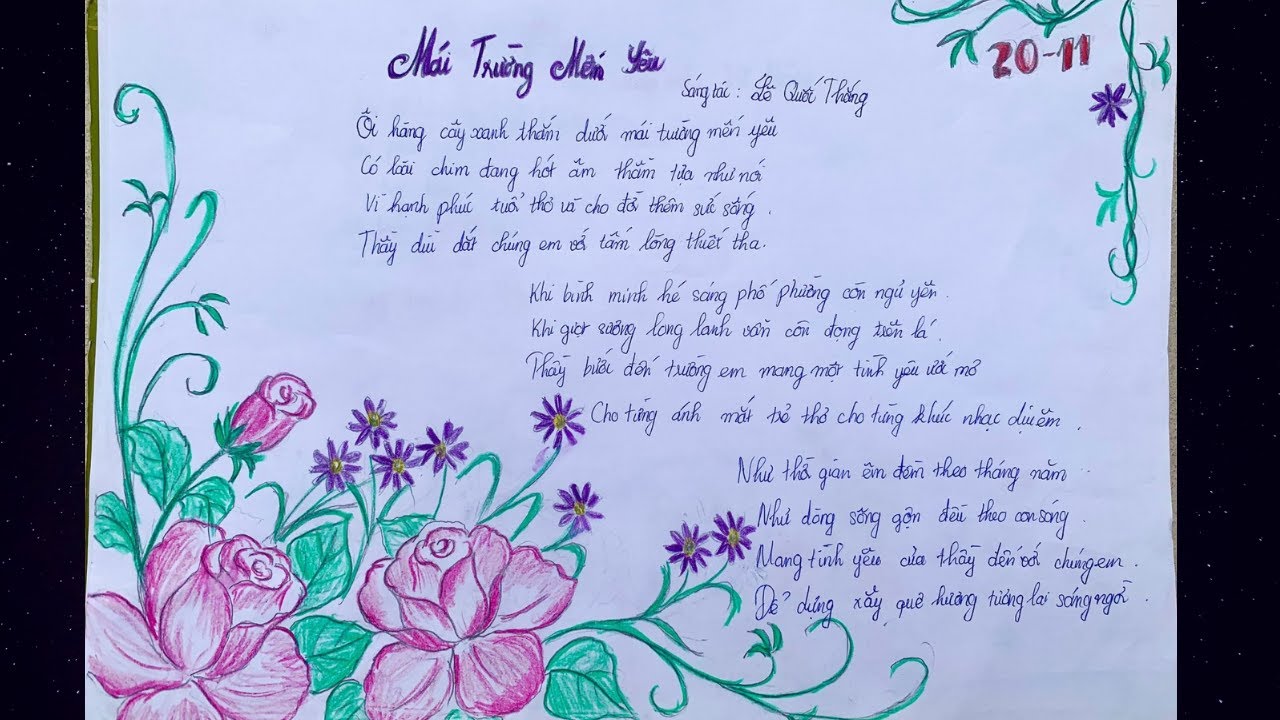 Mái Trường Mến Yêu
20-11
Sáng tác : Lê Quốc Thắng
Ôi hàng cây xanh thắm dưới mái trường mến yêu
Có loài chim đang hót âm thầm tựa như nói
Vì hạnh phúc tuổi thơ và cho đời thêm sức sống .
Thầy dìu dắt chúng em với tấm lòng thiết tha .
Khi bình minh hé sáng phố phường còn ngủ yên .
Khi giọt sương long lanh vẫn còn đọng trên lá .
Thầy bước đến trường em mang một tình yêu ước mơ
Cho từng ánh mắt trẻ thơ cho từng khúc nhạc dịu êm .
Như thời gian êm đềm theo tháng năm .
Như dòng sông gợn đều theo con sóng .
Mang tình yêu của thầy đến với chúng em .
Để dựng xây quê hương tương lai sáng ngời .